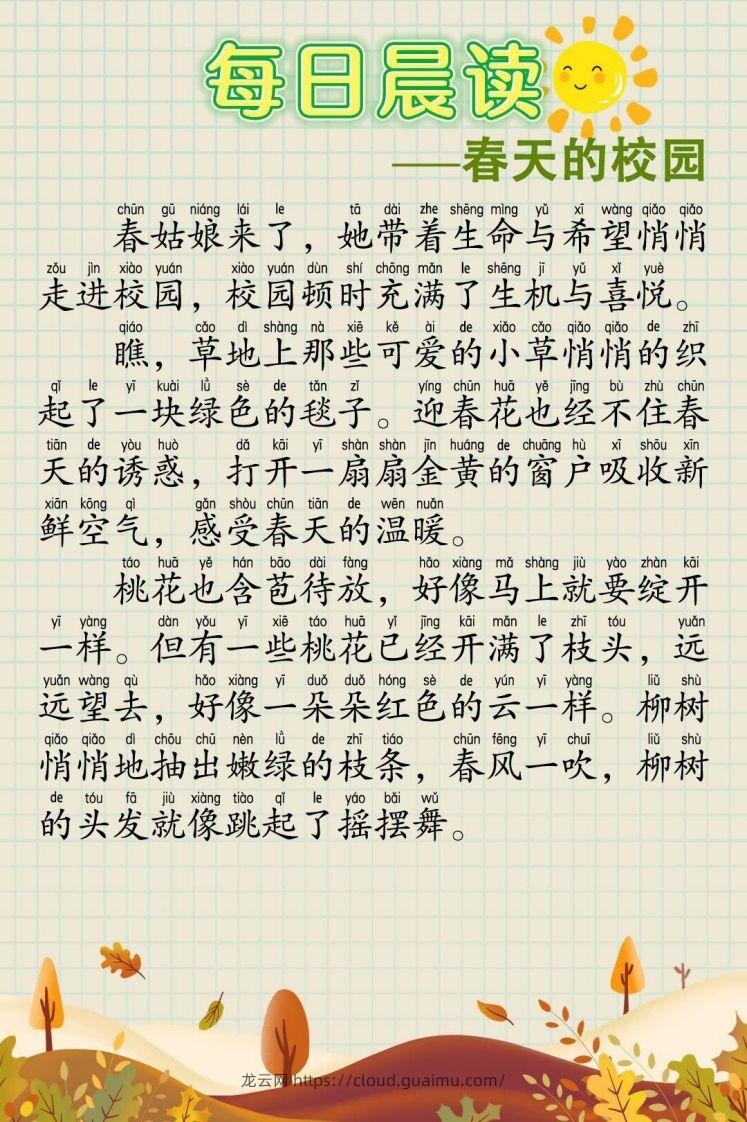 每日晨读
——春天的校园
chūn gū niáng lái le tā dài zhe shēng mìng yǔ xī wàng qiǎo qiǎo
春姑娘来了，她带着生命与希望悄悄
zǒu jìn xiào yuán xiào yuán dùn shí chōng mǎn le shēng jī yǔ xǐ yuè
走进校园，校园顿时充满了生机与喜悦。
qiáo cǎo dì shàng nà xiē kě ài de xiǎo cǎo qiǎo qiǎo de zhī
瞧，草地上那些可爱的小草悄悄的织
qǐ le yī kuài lǜ sè de tǎn zǐ yíng chūn huā yě jīng bù zhù chūn
起了一块绿色的毯子。迎春花也经不住春
tiān de yòu huò dǎ kāi yī shàn shàn jīn huáng de chuāng hù xī shōu xīn
天的诱惑，打开一扇扇金黄的窗户吸收新
xiān kōng qì gǎn shòu chūn tiān de wēn nuǎn
鲜空气，感受春天的温暖。
táo huā yě hán bāo dài fàng hǎo xiàng mǎ shàng jiù yào zhàn kāi
桃花也含苞待放，好像马上就要绽开
yī yàng dàn yǒu yī xiē táo huā yǐ jīng kāi mǎn le zhī tóu yuǎn
一样。但有一些桃花已经开满了枝头，远
yuǎn wàng qù hǎo xiàng yī duǒ duǒ hóng sè de yún yī yàng liǔ shù
远望去，好像一朵朵红色的云一样。柳树
qiǎo qiǎo dì chōu chū nèn lǜ de zhī tiáo chūn fēng yī chuī liǔ shù
悄悄地抽出嫩绿的枝条，春风一吹，柳树
de tóu fā jiù xiàng tiào qǐ le yáo bǎi wǔ
的头发就像跳起了摇摆舞。
龙云网 https://cloud.guaimu.com/